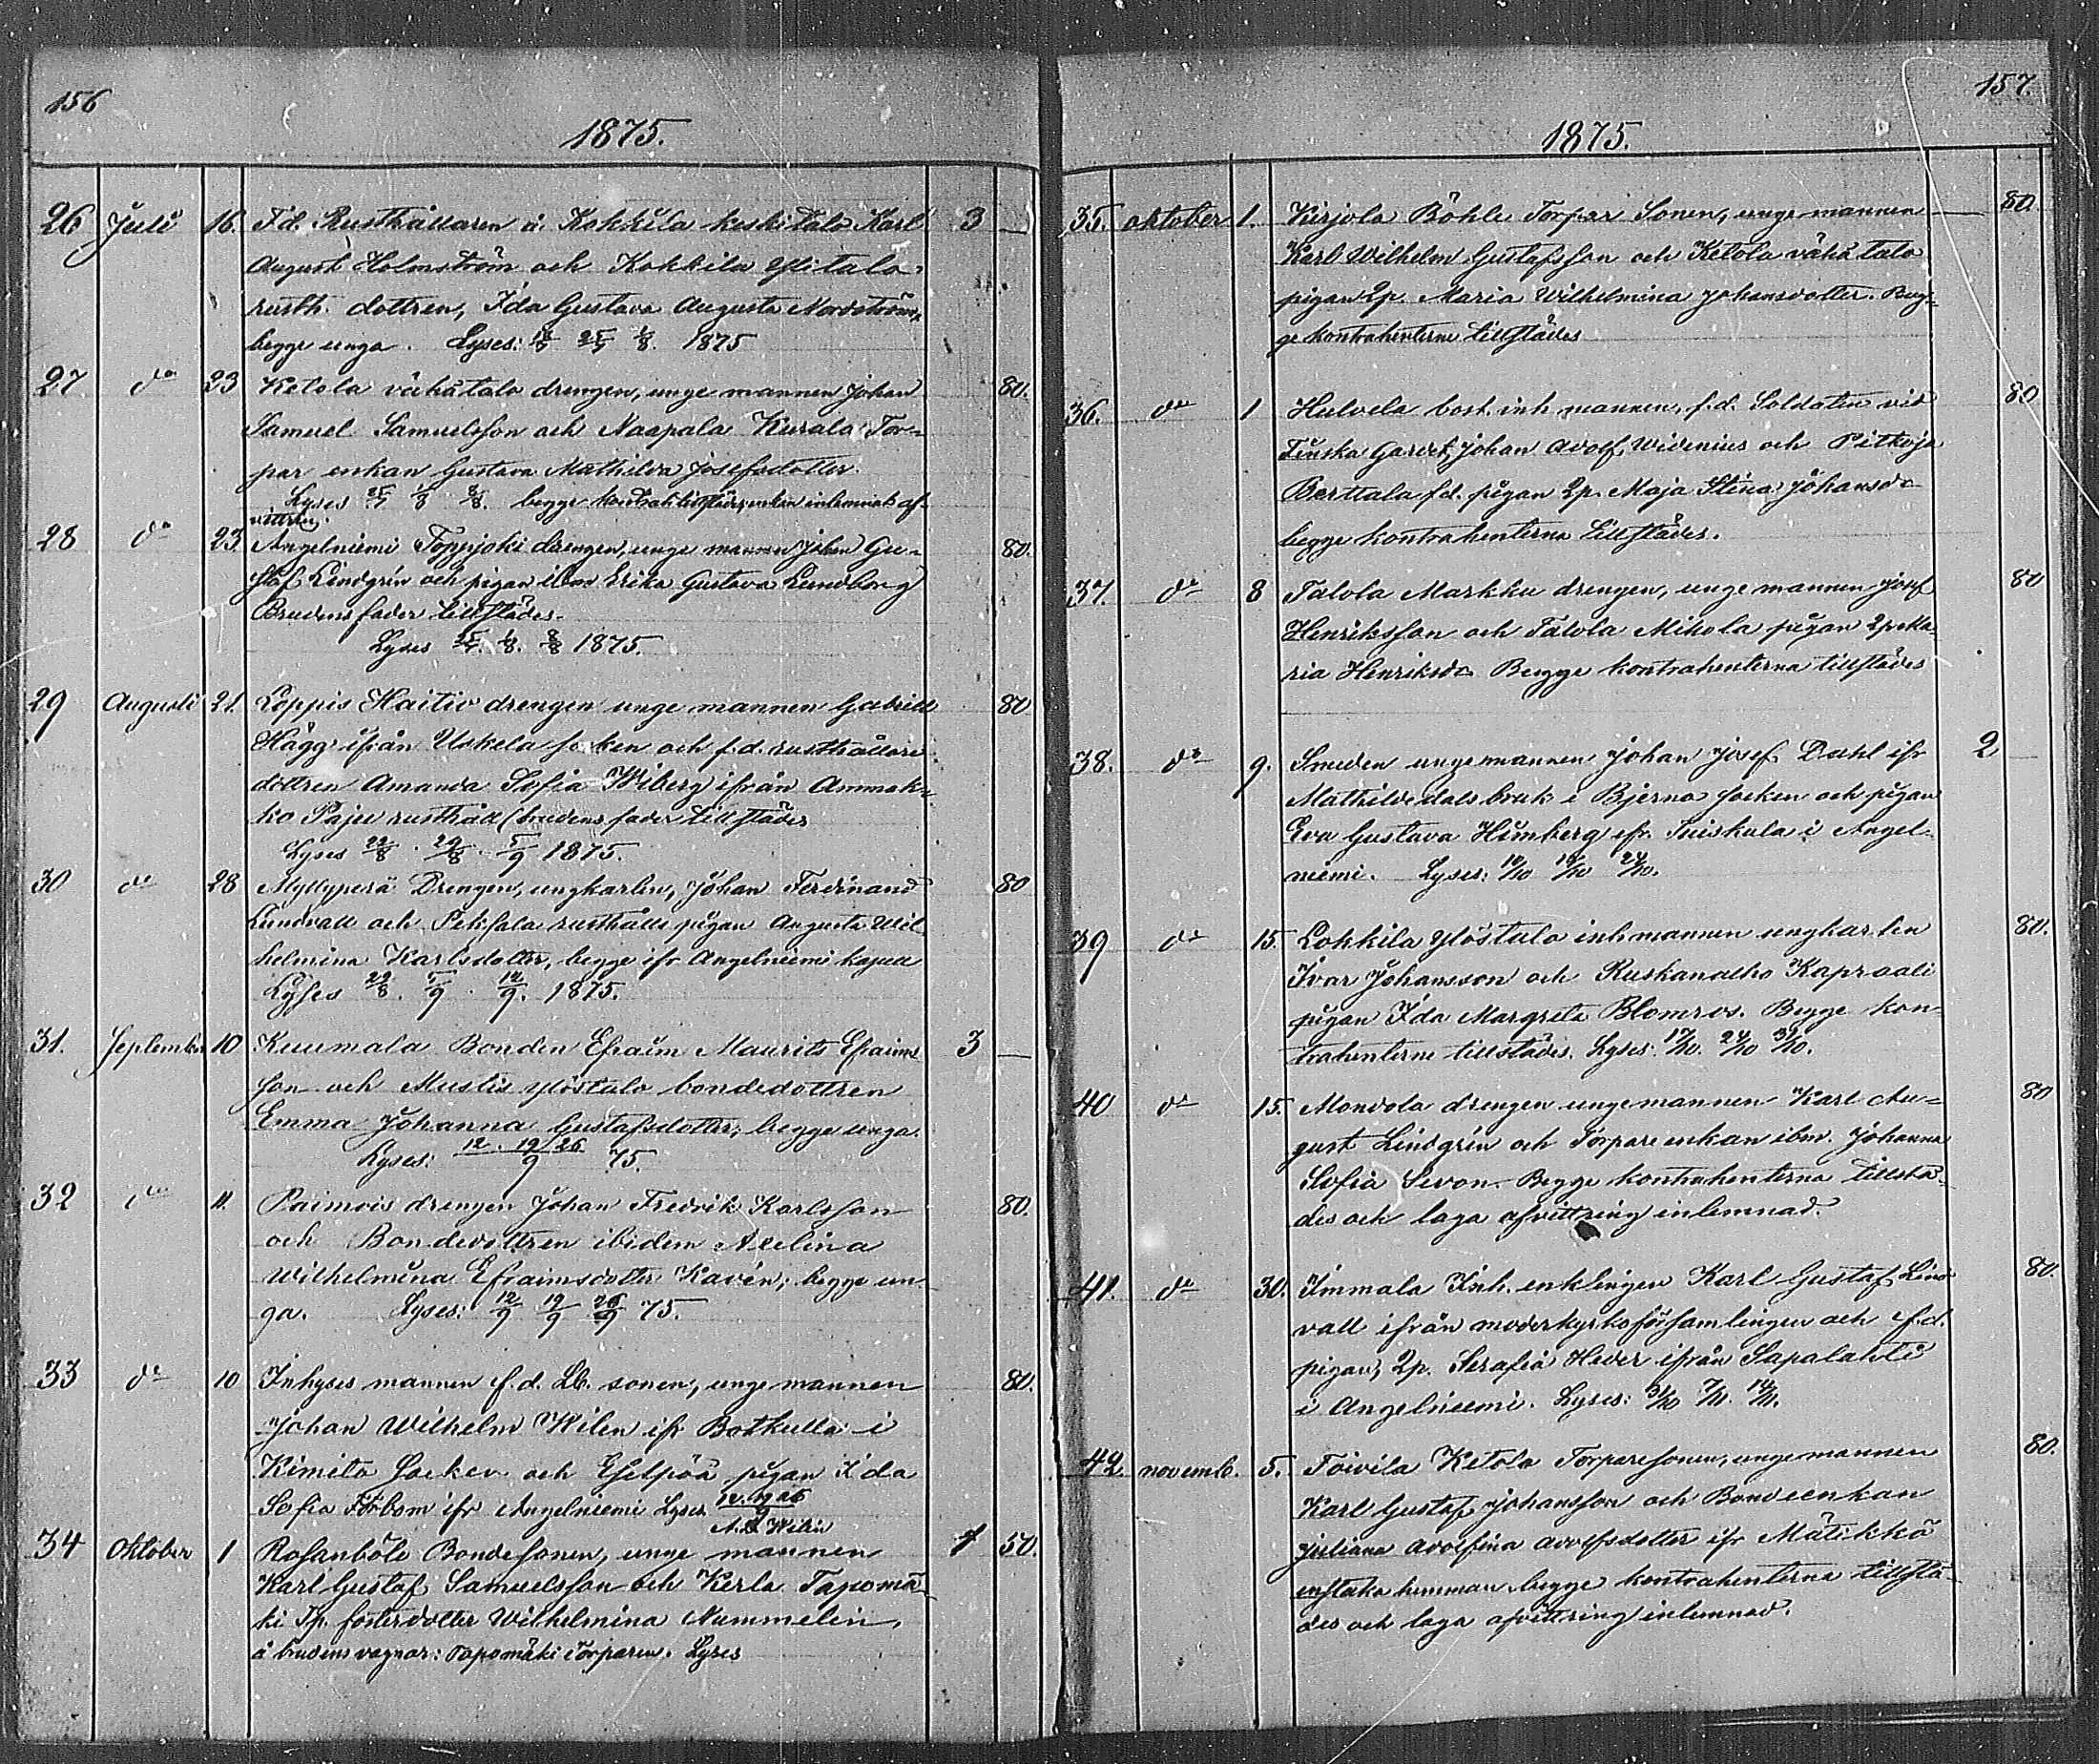 156
1875.
26 Juli 16. F.d. Rusthållaren å Kokkila keskitalo Karl 3 —
August Holmström och Kokkila Ylitalo
rusth. dottren, Ida Gustava Augusta Nordström,
begge unga. Lyses: 18/7 25/7 1/8. 1875
27. do 23 Ketola vähätalo drengen, unge mannen Johan 80.
Samuel Samuelsson och Naapala Kurala Tor-
par enkan Gustava Mathilda Josefsdotter.
Lyses 25/7 1/8 8/8. begge kontrah. tillstädes, enkan inlemnat af-
vittring.
28 do 23 Angelniemi Toppjoki drengen, unge mannen Johan Gu- 80.
staf Lindgrén och pigan ibm Erika Gustava Lundborg
Brudens fader tillstädes.
Lyses 25/7. 1/8. 8/8 1875.
29 Augusti 21. Löppis Haitio drengen unge mannen Gabriel 80
Hägg ifrån Uskela socken och f.d. rusthållare
dottren Amanda Sofia Wiberg ifrån Ammak-
ko Paju rusthåll (brudens fader tillstädes
Lyses 22/8. 29/8. 5/9 1875.
30 do 28 Myllyperä Drengen, ungkarlen, Johan Ferdinand 80
Lundvall och Peksala rusthålls pigan Augusta Wil-
helmina Karlsdotter, begge ifr Angelniemi kapell
Lyses 29/8. 5/9. 12/9. 1875.
31. September 10 Kuumala Bonden Efraim Maurits Efraims 3 —
son och Muslis Yöstalo bondedottren
Emma Johanna Gustafsdotter, begge unga.
Lyses: 12. 19/9 26 75.
32 do 11. Paimois drengen Johan Fredrik Karlsson 80.
och Bondedottren ibidem Axelina
Wilhelmina Efraimsdotter Kavén; begge un-
ga. Lyses: 12/9 19/9 26/9 75.
33 do 10 Inhyses mannen f.d. Lb. sonen, unge mannen 80.
Johan Wilhelm Wilen ifr Botkulla i
Kimito Socken och pigan Ida
Sofia ifr Angelniemi Lyses 12. 19 26/9
Wilén
34 Oktober 1 Rosanböle Bondesonen, unge mannen 1 50.
Karl Gustaf Samuelsson och Kerla Tapomä-
ki Tp. fosterdotter Wilhelmina Nummelin,
å brudens vagnar: Tapomäki Torparen. Lyses
157.
1875.
35. oktober 1. Kirjola Böhle Torpar Sonen, unge mannen — 80.
Karl Wilhelm Gustafsson och Ketola vähätalo
pigan 2p. Maria Wilhelmina Johansdotter. Beg-
ge kontrahenterne tillstädes
36. do 1 Hulvela bost. inh. mannen, f.d. Soldaten vid 80
Finska Gardet, Johan Adolf Widenius och Pitkoja
Berttala f.d. pigan 2p. Maja Stina Johansdr
begge kontrahenterna tillstädes.
37. do 8 Talola Markku drengen, unge mannen Josef 80
Henriksson och Talola Mikola pigan 2p. Ma-
ria Henriksdr Begge kontrahenterna tillstädes
38. do 9. Smeden unge mannen Johan Josef Dahl ifr 2 —
Mathildedals bruk i Bjerno Socken och pigan
Eva Gustava Himberg ifr. Tuiskula i Angel-
niemi. Lyses: 10/10 17/10 24/10.
39 do 15. Lokkila Yöstalo inh mannen ungkarlen 80.
Ivar Johansson och Ruskanalho Kapraali
pigan Ida Margreta Blomros. Begge kon-
trahenterne tillstädes. Lyses: 17/10. 24/10 31/10.
40 do 15. Mondola drengen unge mannen Karl Au- 80
gust Lindgrén och Torpare enkan ibm. Johanna
Sofia Sevon. Begge kontrahenterna tillstä-
des och laga afvittring inlemnad.
41. do 30. Immala Inh. enklingen Karl Gustaf Lind- 80.
vall ifrån moderkyrkoförsamlingen och f.d.
pigan, 2p. Serafia Heder ifrån Sapalahti
i Angelniemi. Lyses: 31/10 7/11. 14/11.
42. novemb. 5. Toivila Ketola Torparesonen, unge mannen 80.
Karl Gustaf Johansson och Bondeenkan
Juliana Adolfina Adolfsdotter ifr Mätikkö
enstaka hemman begge kontrahenterna tillstä-
des och laga afvittring inlemnad.